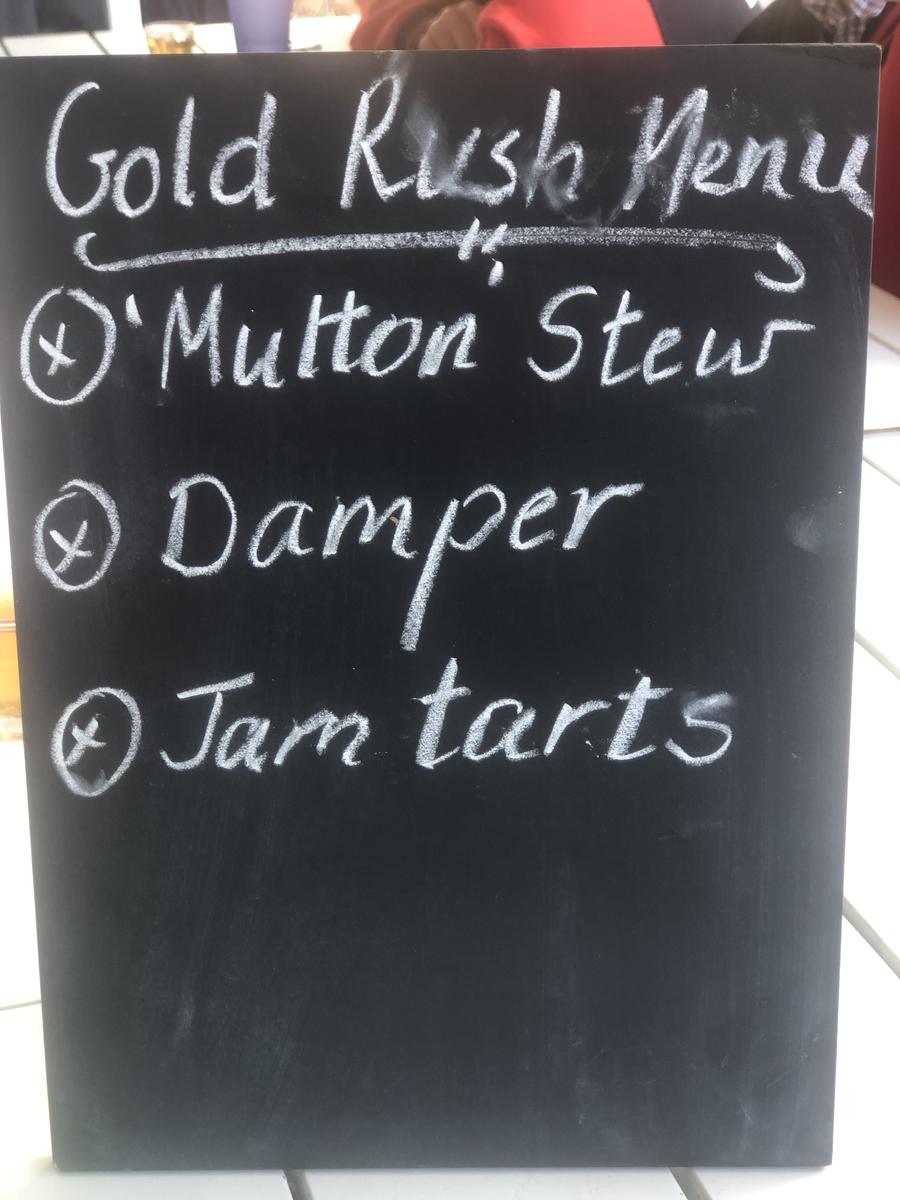 Gold Rush Menu
'Mutton' Stew
Damper
Jam tarts